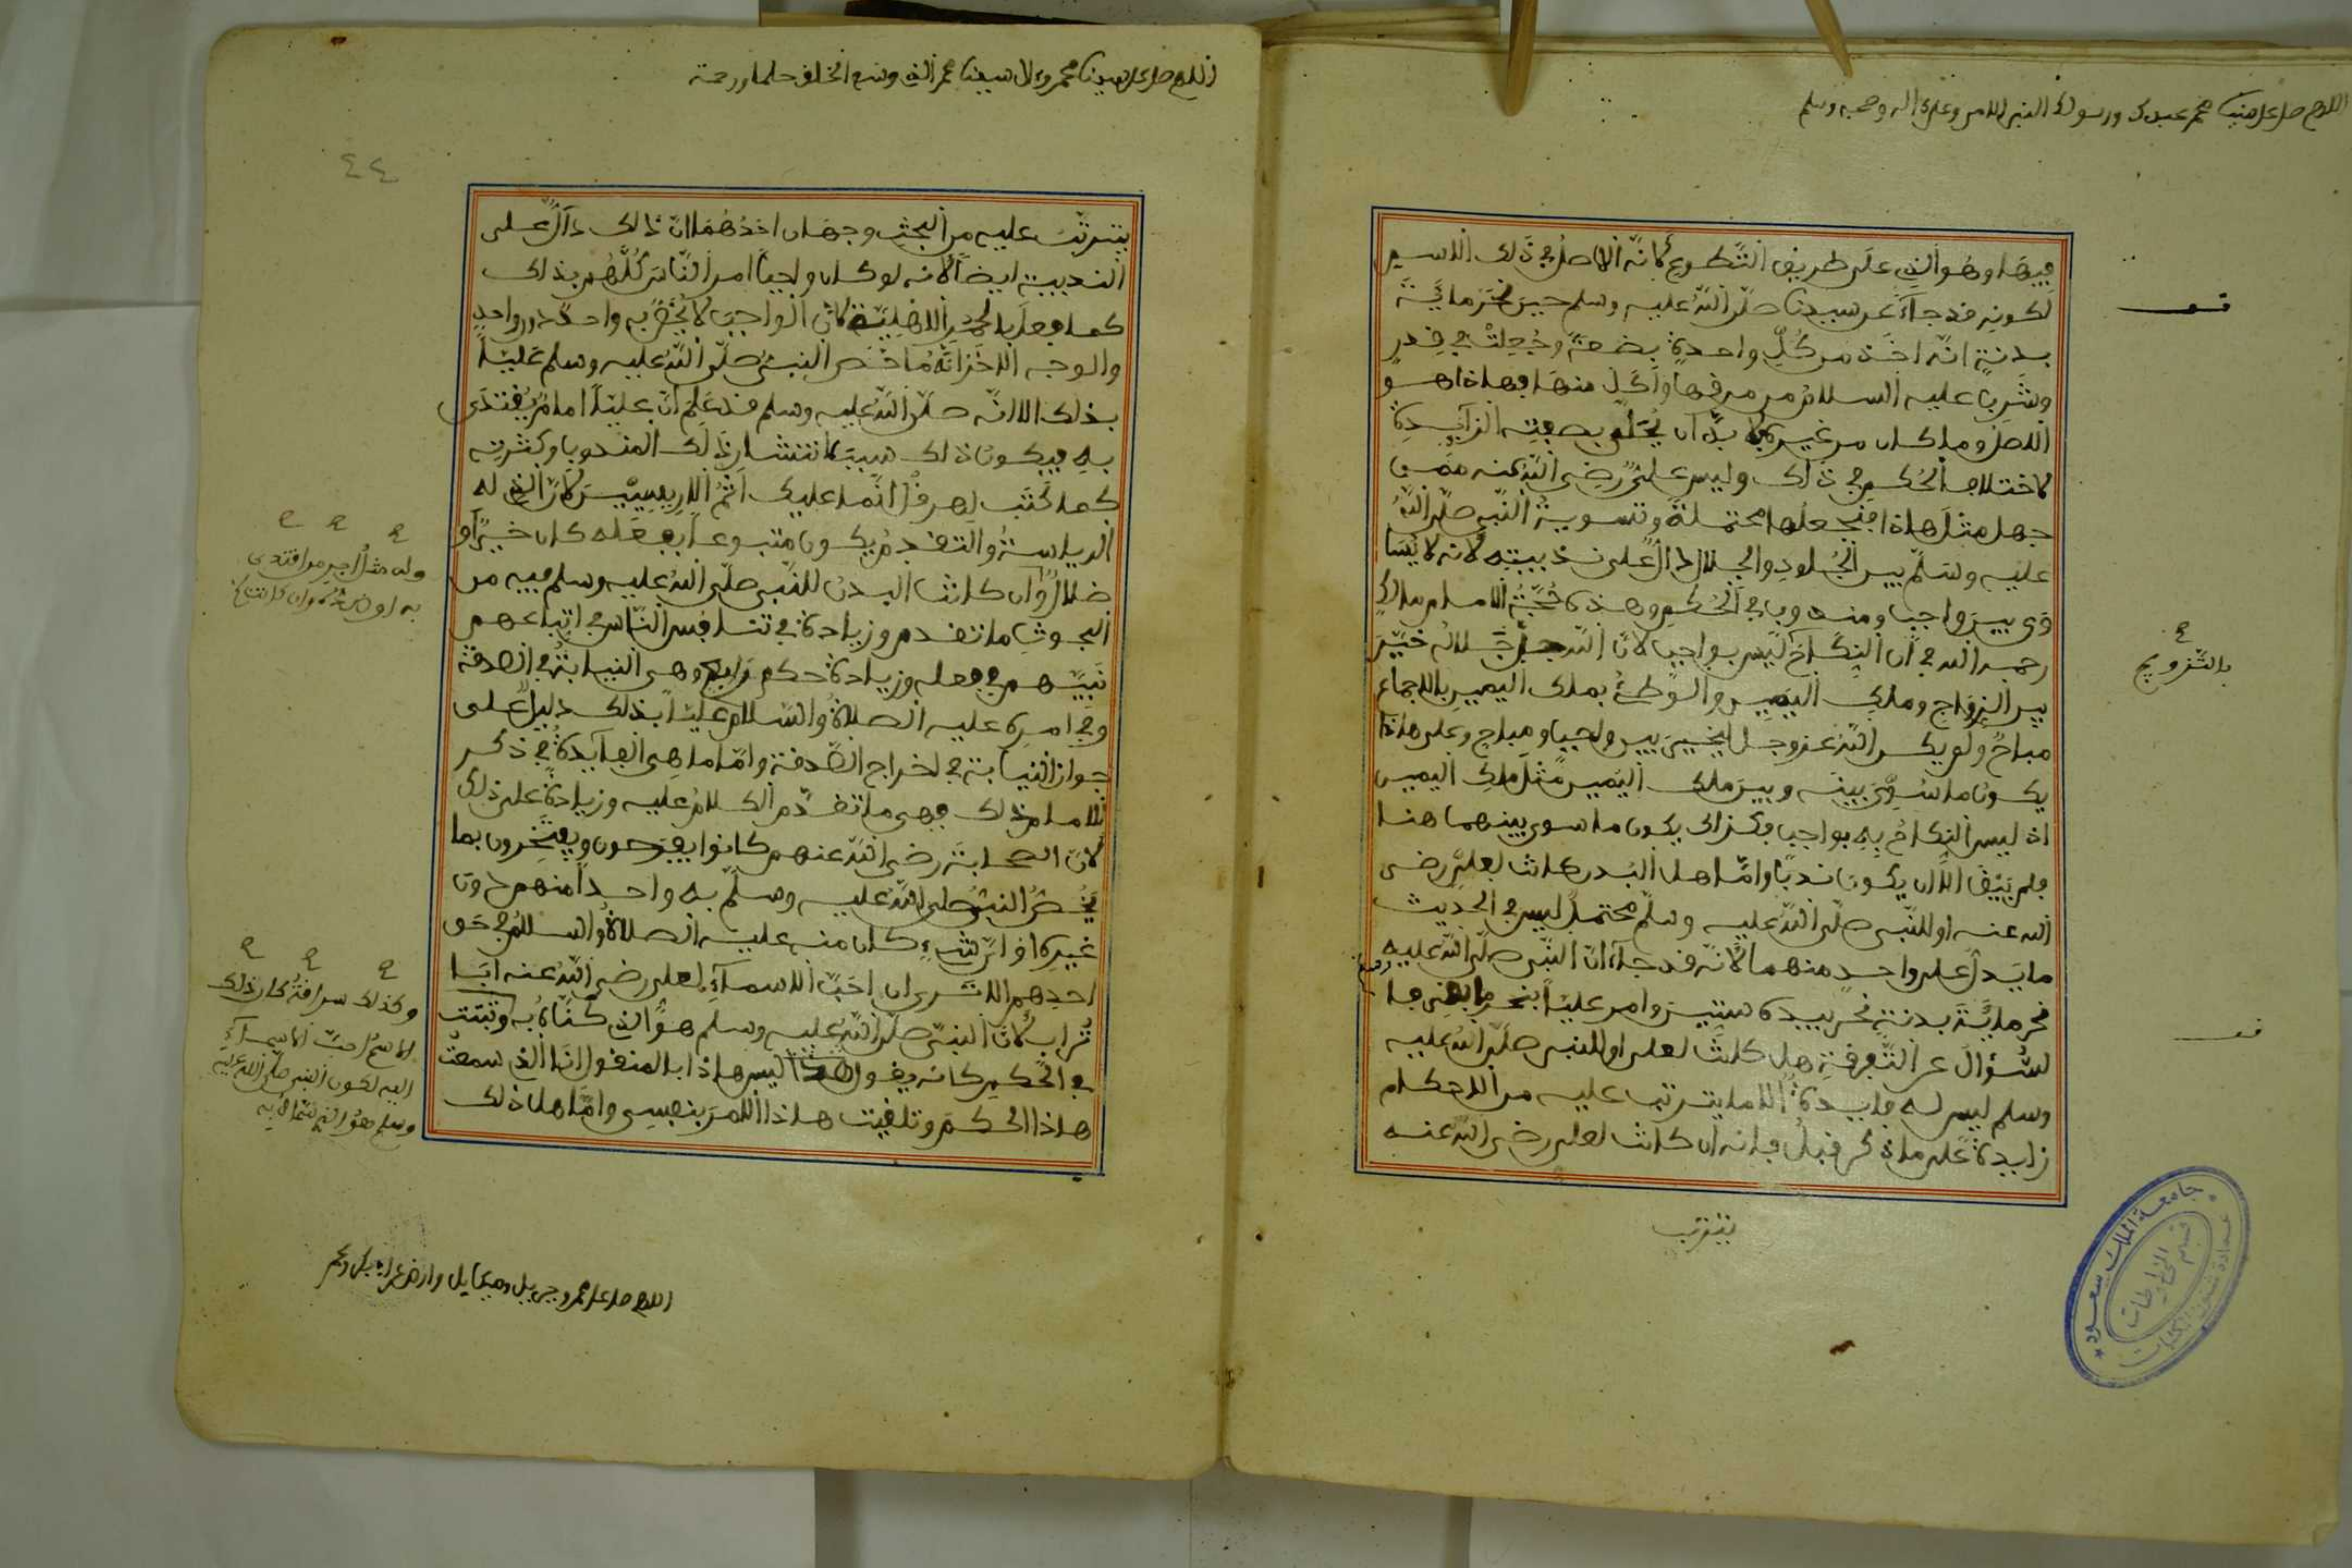 اللهم صل على سيدنا محمد عبدك ورسولك النبي الامي وعلى اله وصحبه وسلم
فيها وهو الذي على طريق التطوع لانه الاصل في ذلك الاسير
لكونه قد جاء عن سيدنا صلى الله عليه وسلم حين نحر مائة
بدنة انه اخذ من كل واحدة بضعة وجعلت في قدر
وشرب عليه السلام من مرقها واكل منها فهاذا هو
الاصل وما كان من غيره لا بد ان يحلى بصفته الزايدة
لاختلاف الحكم في ذلك وليس علي رضي الله عنه ممن
جهل مثل هاذا فنجعلها محتملة وتسوية النبي صلى الله
عليه وسلم بين الجلود والجلال دال على ندبيته لانه لا يسا
وى بين واجب ومندوب في الحكم وهذه حجة الامام مالك
رحمه الله في ان النكاح ليس بواجب لان الله جل جلاله خير
بين الزواج وملك اليمين والوطئ بملك اليمين بالاجماع
مباح ولم يكن الله عز وجل ليخير بين واجب ومباح وعلى هاذا
يكون ما سوى بينه وبين ملك اليمين مثل ملك اليمين
اذ ليس النكاح به بواجب وكذلك يكون ما سوى بينهما هنا
فلم يبق الا ان يكون ندبا واما هل البدن كانت لعلي رضي
الله عنه او للنبي صلى الله عليه وسلم محتمل ليس في الحديث
ما يدل على واحد منهما لانه قد جاء ان النبي صلى الله عليه
نحر مائة بدنة نحر بيده ستين وامر عليا بنحر ما بقي فا
لسؤال عن التفرقة هل كانت لعلي او للنبي صلى الله عليه
وسلم ليس له فايدة الا ما يترتب عليه من الاحكام
زايدة على ما ذكر قبل فانه ان كانت لعلي رضي الله عنه
يترتب
بالتزويج
جامعة الملك سعود
قسم المخطوطات
عمادة شؤون المكتبات
اللهم صل على سيدنا محمد وعلى ال سيدنا محمد الذي وسع الخلق حلما ورحمة
٤٤
يترتب عليه من البحث وجهان احدهما ان ذلك دال على
الندبية ايضا لانه لو كان واجبا امر الناس كلهم بذلك
كما فعل بالحمر الاهلية لان الواجب لا يخص به واحد دون واحد
والوجه الاخر انه ما خص النبي صلى الله عليه وسلم عليا
بذلك الا انه صلى الله عليه وسلم قد علم ان عليا امام يقتدى
به فيكون ذلك سببا لانتشار ذلك المندوب وكثرته
كما كتب لهرقل انما عليك اثم الاريسيين لان الذي له
الرياسة والتقدم يكون متبوعا بفعله كان خيرا او
ضلالا وان كانت البدن للنبي صلى الله عليه وسلم فيه من
البحوث ما تقدم وزيادة في تنافس الناس في اتباعهم
نبيهم في فعله وزيادة حكم رابع وهي النيابة في الصدقة
وفي امره عليه الصلاة والسلام عليا بذلك دليل على
جواز النيابة في اخراج الصدقة واما ما هي الفايدة في ذكر
الامام ذلك فهي ما تقدم الكلام عليه وزيادة على ذلك
لان الصحابة رضي الله عنهم كانوا يفرحون ويفتخرون بما
يخص النبي صلى الله عليه وسلم به واحدا منهم دون
غيره او اي شيء كان منه عليه الصلاة والسلام في حق
احدهم الا ترى ان احب الاسماء لعلي رضي الله عنه ابا
تراب لان النبي صلى الله عليه وسلم هو الذي كناه به وتثبت
في الحكم كانه يقول ليس هاذا بالمنقول انا الذي سمعت
هاذا الحكم وتلقيت هاذا الامر بنفسي واما هل ذلك
وله مثل اجر من اقتدى
وكذلك سراقة كان ذلك
الاسم احب الاسماء
اليه لكون النبي صلى الله عليه
وسلم هو الذي سماه به
اللهم صل على محمد وجبريل وميكايل